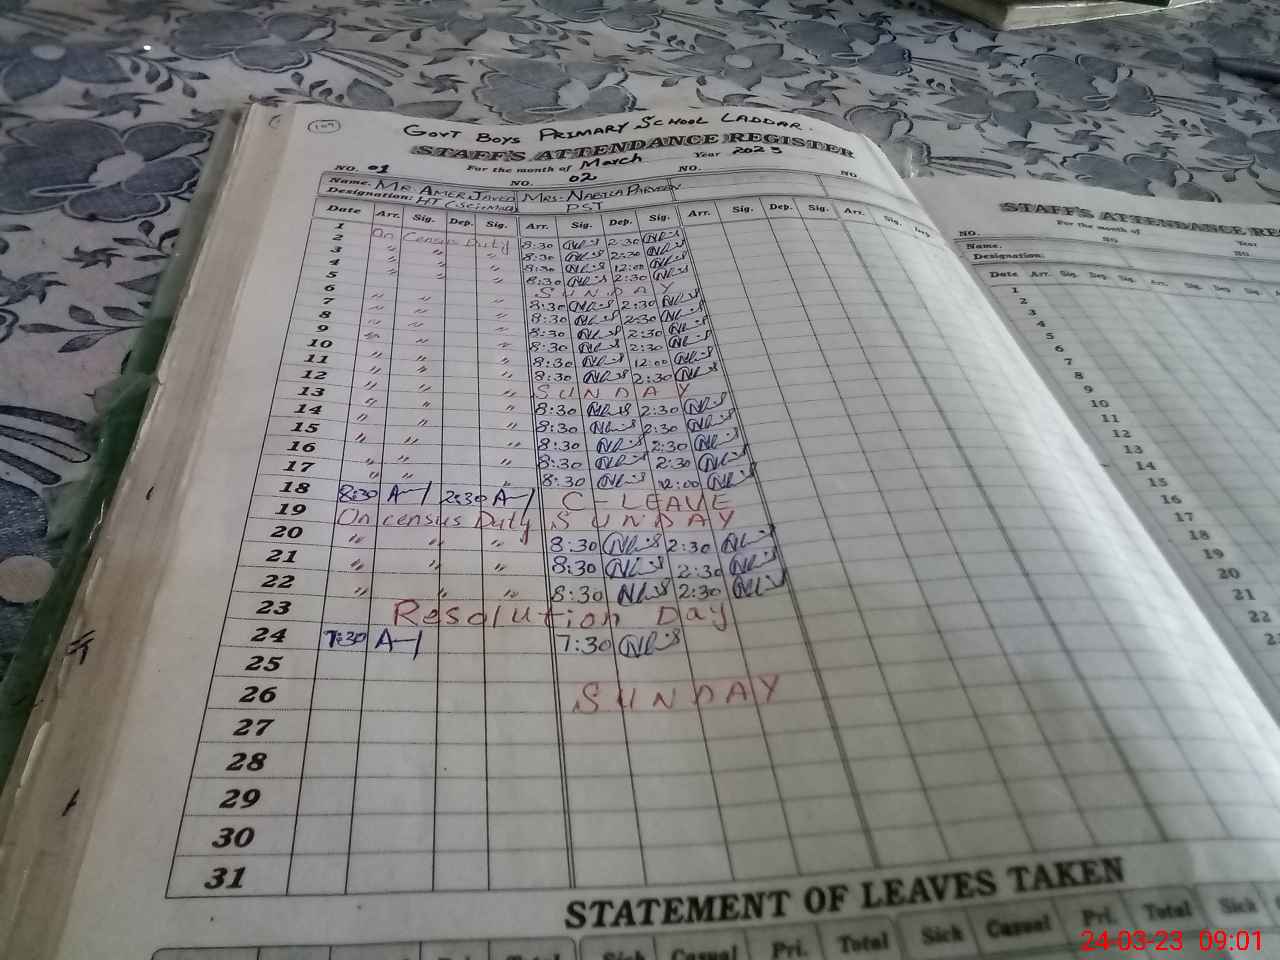 109
GOVT BOYS PRIMARY SCHOOL LADDAR.
STAFF'S ATTENDANCE REGISTER
For the month of March Year 2023
NO. 01 NO. 02 NO. NO
Name. MR. AMER JAVED MRS. NABILA PARVEEN
Designation: PST
Date Arr. Sig. Dep. Sig. Arr. Sig. Dep. Sig. Arr. Sig. Dep. Sig. Arr. Sig. Dep
1 On Census Duty 8:30 2:30
2 " " " 8:30 2:30
3 " " " 8:30 12:00
4 " " " 8:30 2:30
5 SUNDAY
6 " " " 8:30 2:30
7 " " " 8:30 2:30
8 " " " 8:30 2:30
9 " " " 8:30 2:30
10 " " " 8:30 12:00
11 " " " 8:30 2:30
12 " " " SUNDAY
13 " " " 8:30 2:30
14 " " " 8:30 2:30
15 " " " 8:30 2:30
16 " " " 8:30 2:30
17 " " " 8:30 12:00
18 8:30 2:30 C LEAVE
19 On census Duty SUNDAY
20 " " " 8:30 2:30
21 " " " 8:30 2:30
22 " " " 8:30 2:30
23 Resolution Day
24 7:30 7:30
25
26 SUNDAY
27
28
29
30
31
STATEMENT OF LEAVES TAKEN
Sich Casual Pri. Total Sich Casual Pri. Total Sich
STAFF'S ATTENDANCE RE
For the month of Year
NO. NO NO
Name.
Designation:
Date Arr. Sig. Dep Sig. Arr. Sig. Dep. Sig.
1
2
3
4
5
6
7
8
9
10
11
12
13
14
15
16
17
18
19
20
21
22
24-03-23 09:01